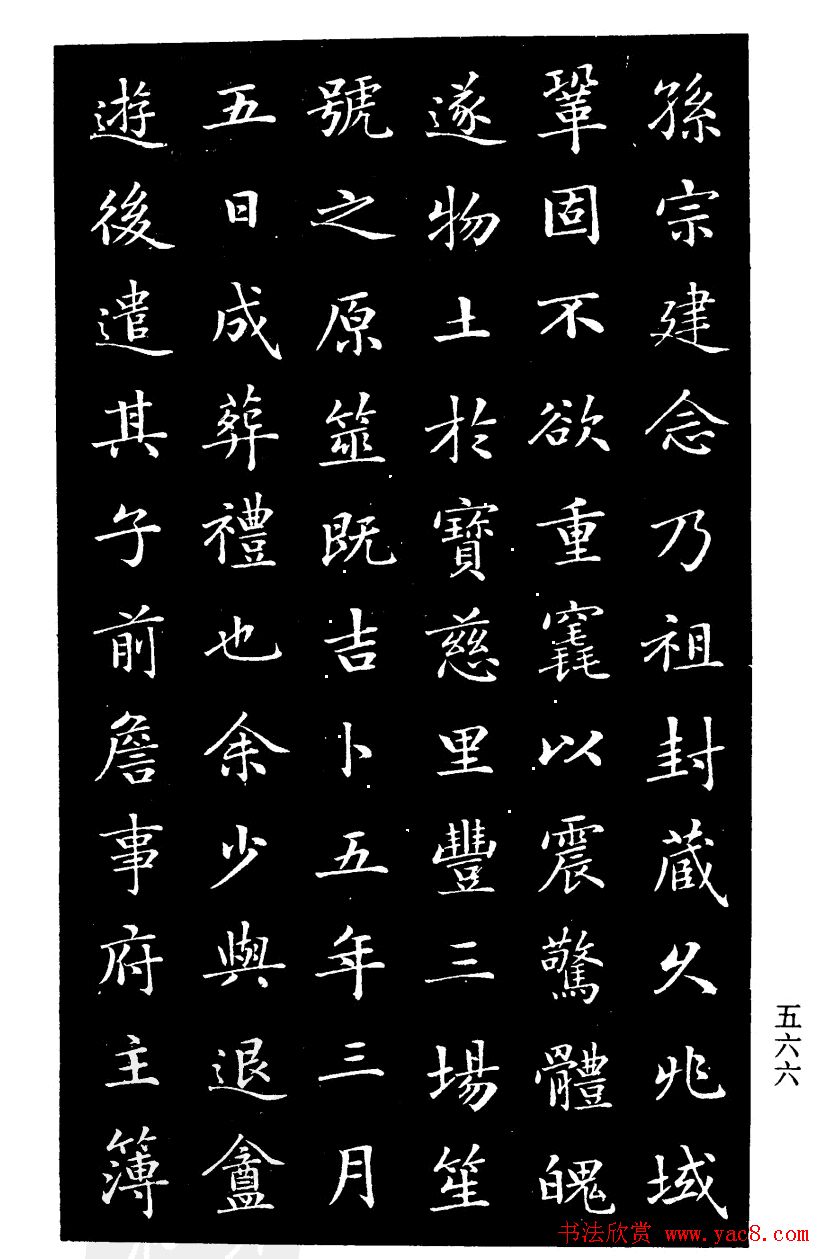 孫宗建念乃祖封藏久兆域
鞏固不欲重竁以震驚體魄
遂物土於寶慈里豐三場笙
號之原筮既吉卜五年三月
五日成葬禮也余少與退盦
遊後遣其子前詹事府主簿
五六六
书法欣赏 www.yac8.com